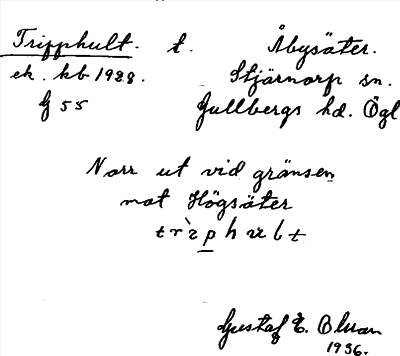 Tripphult. t. Åbysäter.
ek. kb 1928. Stjärnorp sn.
G 55 Gullbergs hd. Ögl
Norr ut vid gränsen
mot Högsäter
Gustaf E.
1936.